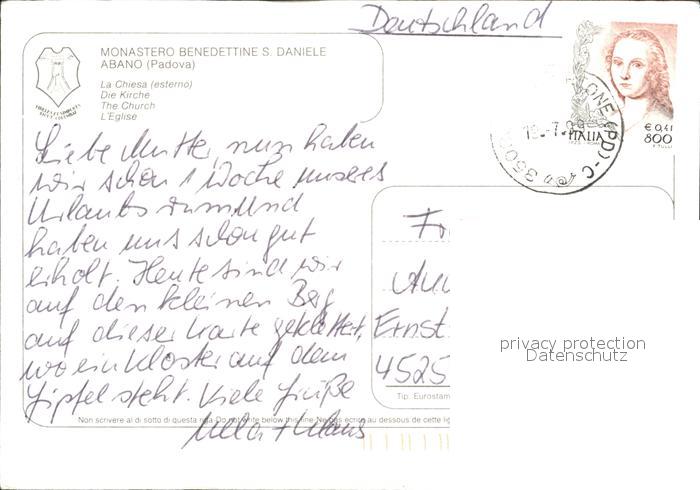 Deutschland
MONASTERO BENEDETTINE S. DANIELE
ABANO (Padova)
La Chiesa (esterno)
Die Kirche
The Church
L'Eglise
€ 0,41
ITALIA 800
Liebe Mutter, nun haben
wir schon 1 Woche unseres
Urlaubs rum und
haben uns schon gut
erholt. Heute sind wir
auf den kleinen Berg
auf dieser Karte geklettert,
wo ein Kloster auf dem
Gipfel steht. Viele Grüße
Klaus
Ernst
4525
privacy protection
Datenschutz
Tip. Eurostam
Non scrivere al di sotto di questa riga-Do not write below this line-Ne pas écrire au dessous de cette lig